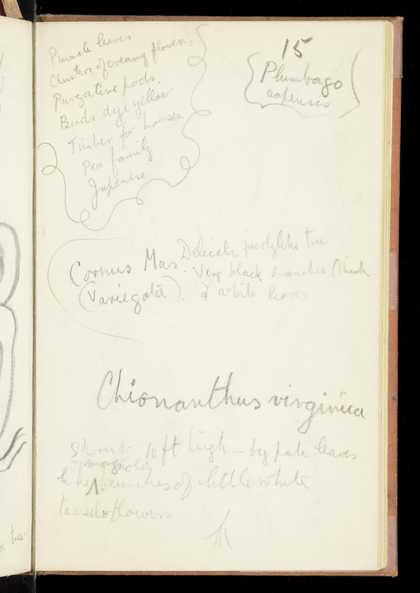 Pinnate leaves
Clusters of creamy flowers.
Purgative pods.
Buds dye yellow
Timber for houses
Pea family
Japanese
15
Plumbago
capensis
Cornus Mas. Delicate tree
(Variegata). Very black branches
& white leaves
Chionanthus virginica
Shrub 10 ft high - big pale leaves
bunches of little white
flowers